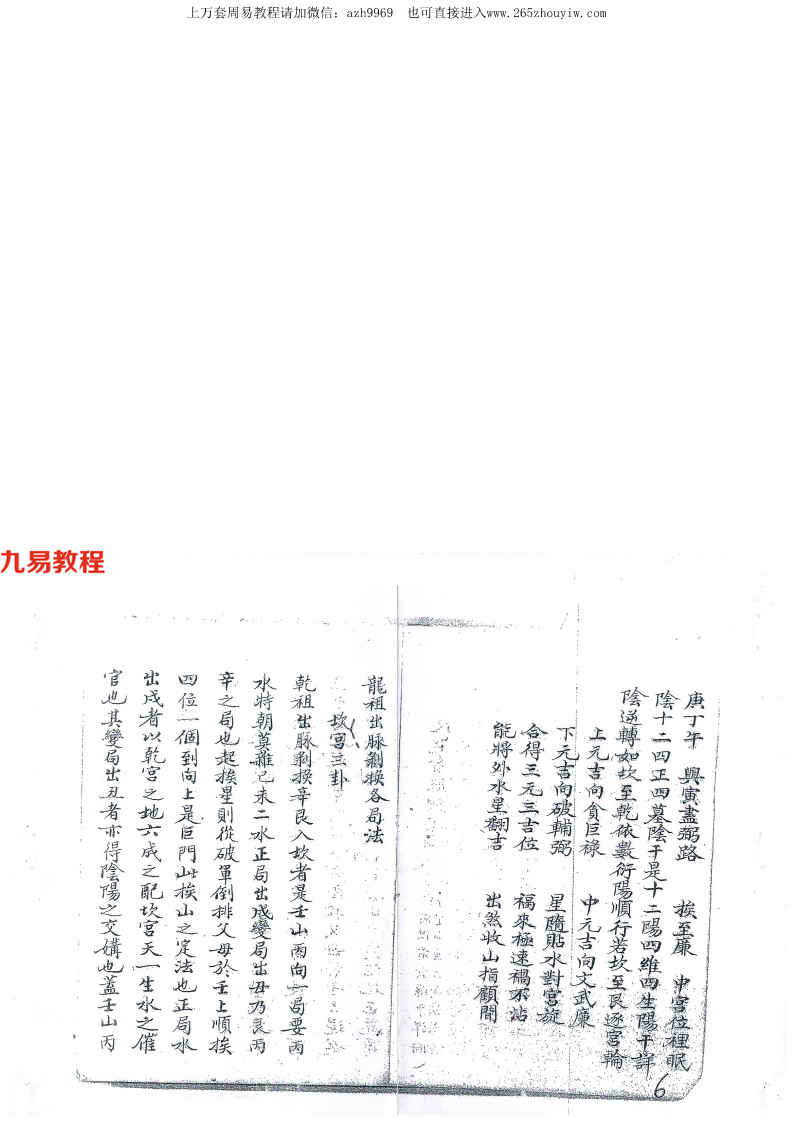 上万套周易教程请加微信：azh9969 也可直接进入www.265zhouyiw.com
九易教程
庚丁午 興寅盡弼路 挨至廉 中宮位裡眠
陰十二四正四墓陰干是十二陽四維四生陽干詳
陰逆轉如坎至乾依數衍陽順行若坎至艮逐宮輪
上元吉向貪巨祿 中元吉向文武廉
下元吉向破輔弼 星隨貼水對宮旋
合得三元三吉位 福來極速禍不沾
能將外水星翻吉 出煞收山指顧間
6
龍祖出脈剝換各局法
坎宮三卦
乾祖出脈剝換辛艮入坎者是壬山丙向一局要丙
水特朝莫雜己未二水正局出戌變局出丑乃艮丙
辛之局也起挨星則從破軍倒排父母於壬上順挨
四位一個到向上是巨門此挨山之定法也正局水
出戌者以乾宮之地六成之配坎宮天一生水之催
官也其變局出丑者亦得陰陽之交媾也蓋壬山丙